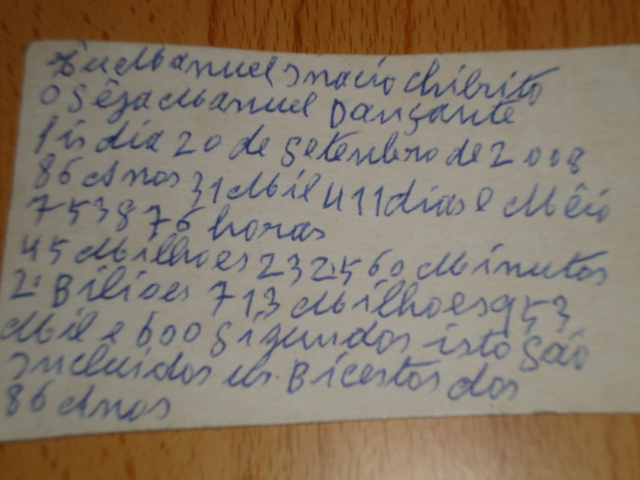 Eu Manuel Inacio Chibrito
o Sêja Manuel Dançante
Fis dia 20 de Setenbro de 2008
86 Anos 31 Mil 411 dias e Mêio
753876 horas
45 Milhoes 232.560 Minutos
2: Bilioes 713 Milhoes 953
Mil e 600 Sigundos isto São
incluidos us Bicestos dos
86 Anos